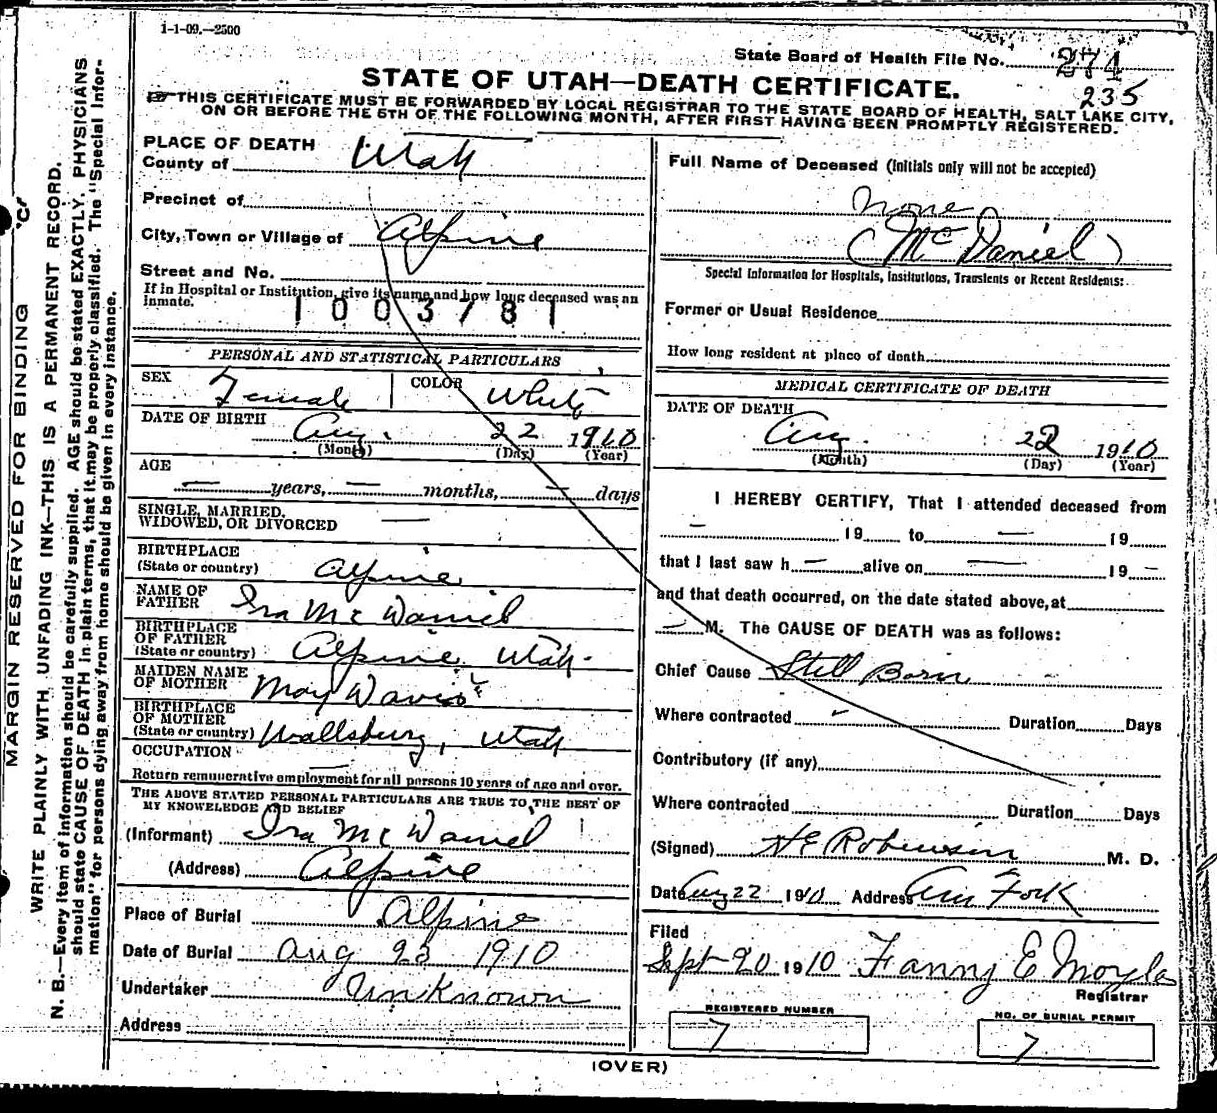 1-1-09.—2500
State Board of Health File No. 274
235
STATE OF UTAH—DEATH CERTIFICATE.
THIS CERTIFICATE MUST BE FORWARDED BY LOCAL REGISTRAR TO THE STATE BOARD OF HEALTH, SALT LAKE CITY,
ON OR BEFORE THE 5TH OF THE FOLLOWING MONTH, AFTER FIRST HAVING BEEN PROMPTLY REGISTERED.
MARGIN RESERVED FOR BINDING
WRITE PLAINLY WITH UNFADING INK—THIS IS A PERMANENT RECORD.
N. B.—Every item of information should be carefully supplied. AGE should be stated EXACTLY. PHYSICIANS
should state CAUSE OF DEATH in plain terms, that it may be properly classified. The "Special Infor-
mation" for persons dying away from home should be given in every instance.
PLACE OF DEATH
County of Utah
Precinct of
City, Town or Village of Alpine
Street and No.
If in Hospital or Institution, give its name and how long deceased was an
inmate.
1003781
PERSONAL AND STATISTICAL PARTICULARS
SEX Female COLOR White
DATE OF BIRTH
Aug. 22 1910
(Month) (Day) (Year)
AGE
— years, — months, — days
SINGLE, MARRIED,
WIDOWED, OR DIVORCED —
BIRTHPLACE
(State or country) Alpine
NAME OF
FATHER Ira Mc Daniel
BIRTHPLACE
OF FATHER
(State or country) Alpine Utah
MAIDEN NAME
OF MOTHER May Davis
BIRTHPLACE
OF MOTHER
(State or country) Wallsburg, Utah
OCCUPATION —
Return remunerative employment for all persons 10 years of age and over.
THE ABOVE STATED PERSONAL PARTICULARS ARE TRUE TO THE BEST OF
MY KNOWLEDGE AND BELIEF
(Informant) Ira Mc Daniel
(Address) Alpine
Place of Burial Alpine
Date of Burial Aug 23 1910
Undertaker Unknown
Address
Full Name of Deceased (Initials only will not be accepted)
None
(Mc Daniel)
Special Information for Hospitals, Institutions, Transients or Recent Residents:
Former or Usual Residence
How long resident at place of death
MEDICAL CERTIFICATE OF DEATH
DATE OF DEATH
Aug. 22 1910
(Month) (Day) (Year)
I HEREBY CERTIFY, That I attended deceased from
— 19 to — 19
that I last saw h — alive on — 19 —
and that death occurred, on the date stated above, at
— M. The CAUSE OF DEATH was as follows:
Chief Cause Still Born
Where contracted Duration Days
Contributory (if any)
Where contracted Duration Days
(Signed) H E Robinson M. D.
Date Aug 22 1910 Address Am Fork
Filed
Sept 20 1910 Fanny E Moyle
Registrar
REGISTERED NUMBER
7
NO. OF BURIAL PERMIT
7
(OVER)